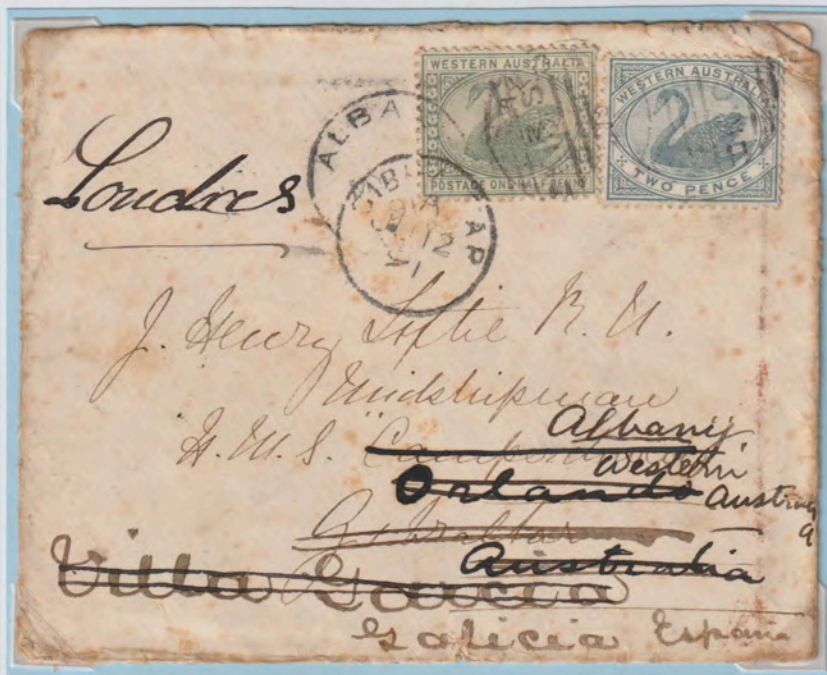 WESTERN AUSTRALIA
POSTAGE ONE HALF PENNY
WESTERN AUSTRALIA
TWO PENCE
ALBA
AP
12
Londres
J. Henry Loftie R. N.
Midshipman
H. M. S. "
Albany
Western
Orlando Austra
Gibraltar
Australia
Villa Garcia
Galicia España